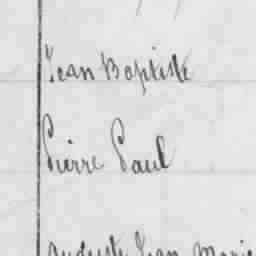 Jean Baptiste
Pierre Paul
Auguste Jean Marie